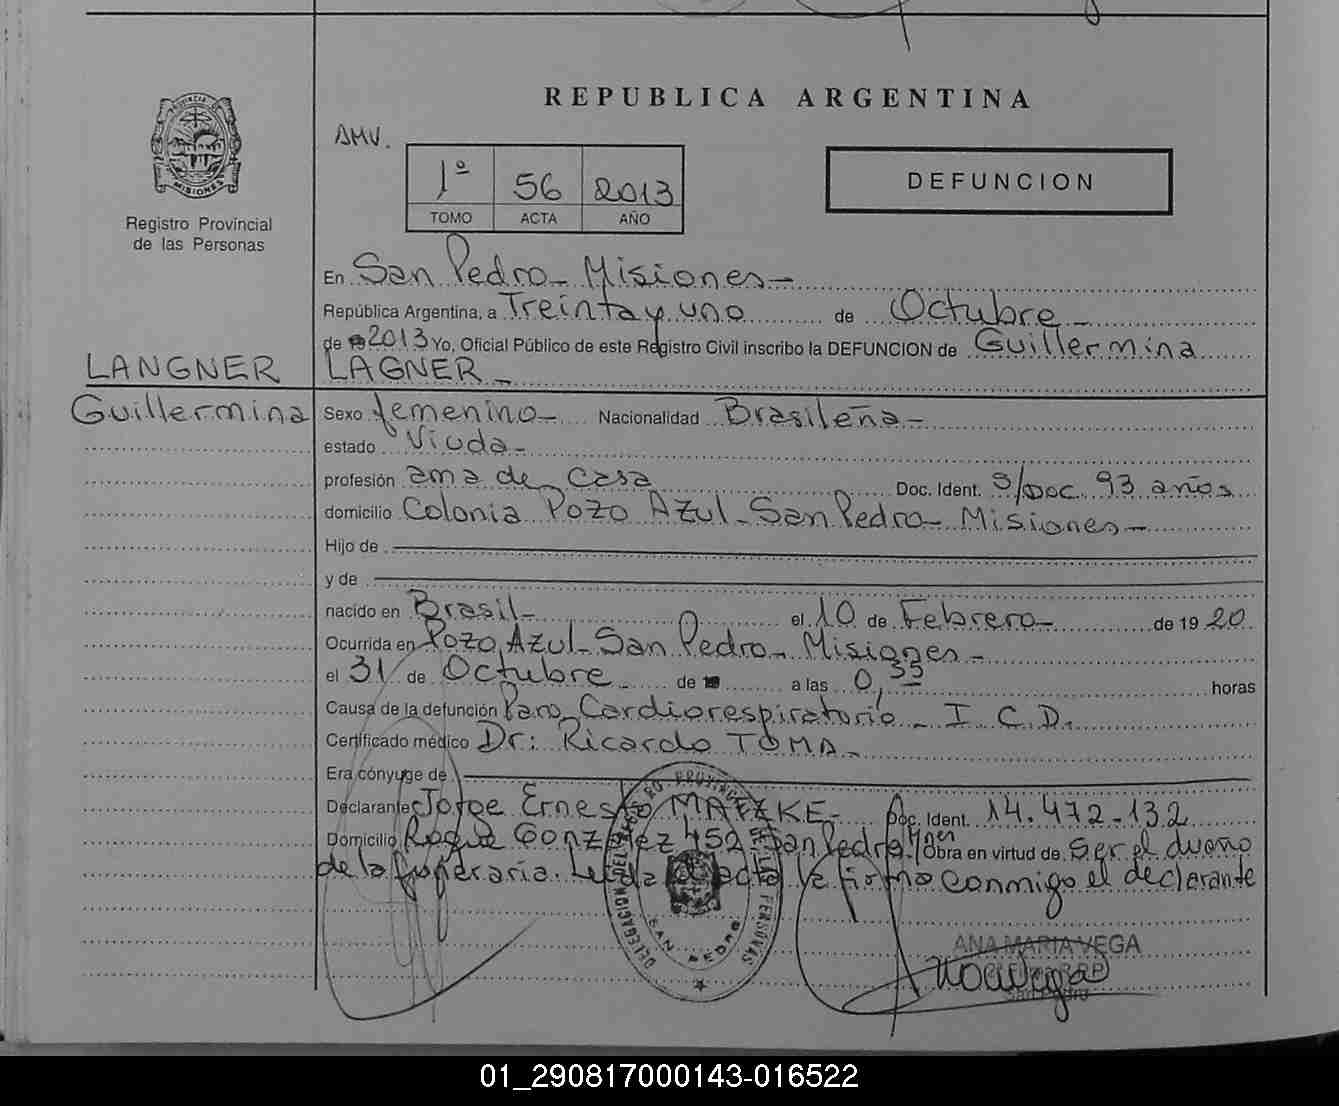 REPUBLICA ARGENTINA
PROVINCIA DE
MISIONES
Registro Provincial
de las Personas
AMV.
1º 56 2013
TOMO ACTA AÑO
DEFUNCION
En San Pedro - Misiones -
República Argentina, a Treinta y uno de Octubre -
de 2013 Yo, Oficial Público de este Registro Civil inscribo la DEFUNCION de Guillermina
LANGNER LAGNER -
Guillermina Sexo femenino - Nacionalidad Brasileña -
estado Viuda -
profesión ama de casa Doc. Ident. S/Doc 93 años
domicilio Colonia Pozo Azul - San Pedro - Misiones -
Hijo de
y de
nacido en Brasil - el 10 de Febrero - de 19 20
Ocurrida en Pozo Azul - San Pedro - Misiones -
el 31 de Octubre - de a las 0,35 horas
Causa de la defunción Paro Cardiorespiratorio - I C.D.
Certificado médico Dr: Ricardo TOMA -
Era cónyuge de
Declarante Jorge Ernesto MATZKE - Doc. Ident. 14.472.132
Domicilio Roque Gonzalez 452 San Pedro Mnes Obra en virtud de ser el dueño
de la funeraria. Leida el acta la firma conmigo el declarante
DELEGACION DEL REGISTRO PROVINCIAL DE LAS PERSONAS
SAN PEDRO
ANA MARIA VEGA
San Pedro
01_290817000143-016522